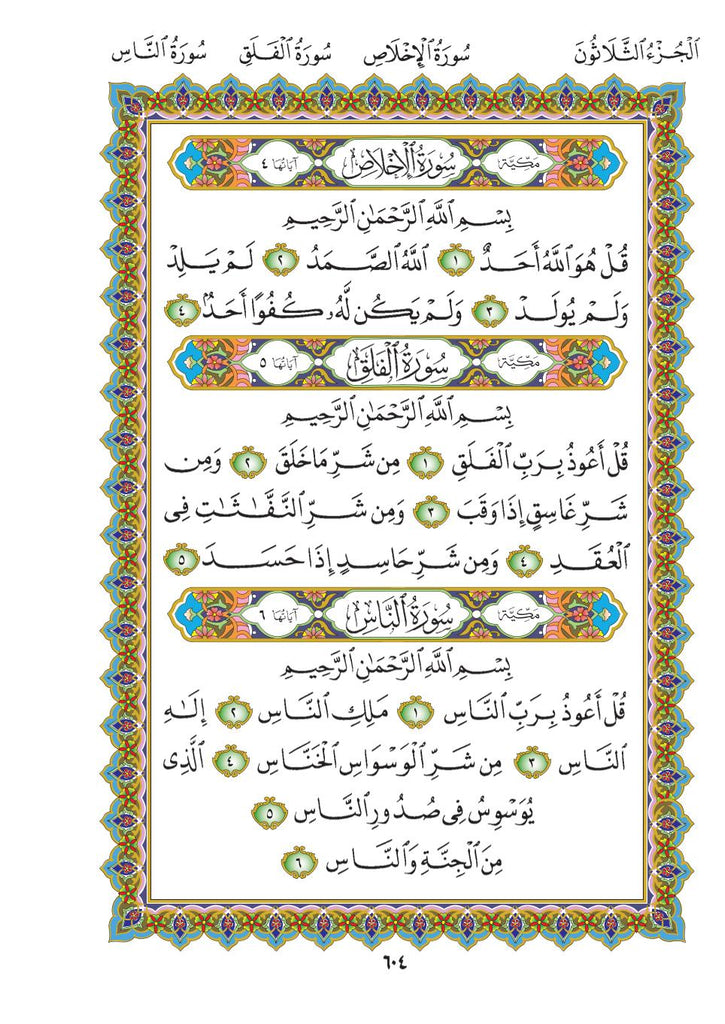 الجُزْءُ الثَّلَاثُونَ سُورَةُ الإِخْلَاصِ سُورَةُ الْفَلَقِ سُورَةُ النَّاسِ
مَكِّيَّة سُورَةُ الإِخْلَاصِ آيَاتُهَا ٤
بِسْمِ ٱللَّهِ ٱلرَّحْمَٰنِ ٱلرَّحِيمِ
قُلْ هُوَ ٱللَّهُ أَحَدٌ ١ ٱللَّهُ ٱلصَّمَدُ ٢ لَمْ يَلِدْ
وَلَمْ يُولَدْ ٣ وَلَمْ يَكُن لَّهُۥ كُفُوًا أَحَدٌۢ ٤
مَكِّيَّة سُورَةُ الْفَلَقِ آيَاتُهَا ٥
بِسْمِ ٱللَّهِ ٱلرَّحْمَٰنِ ٱلرَّحِيمِ
قُلْ أَعُوذُ بِرَبِّ ٱلْفَلَقِ ١ مِن شَرِّ مَا خَلَقَ ٢ وَمِن
شَرِّ غَاسِقٍ إِذَا وَقَبَ ٣ وَمِن شَرِّ ٱلنَّفَّٰثَٰتِ فِى
ٱلْعُقَدِ ٤ وَمِن شَرِّ حَاسِدٍ إِذَا حَسَدَ ٥
مَكِّيَّة سُورَةُ النَّاسِ آيَاتُهَا ٦
بِسْمِ ٱللَّهِ ٱلرَّحْمَٰنِ ٱلرَّحِيمِ
قُلْ أَعُوذُ بِرَبِّ ٱلنَّاسِ ١ مَلِكِ ٱلنَّاسِ ٢ إِلَٰهِ
ٱلنَّاسِ ٣ مِن شَرِّ ٱلْوَسْوَاسِ ٱلْخَنَّاسِ ٤ ٱلَّذِى
يُوَسْوِسُ فِى صُدُورِ ٱلنَّاسِ ٥
مِنَ ٱلْجِنَّةِ وَٱلنَّاسِ ٦
٦٠٤